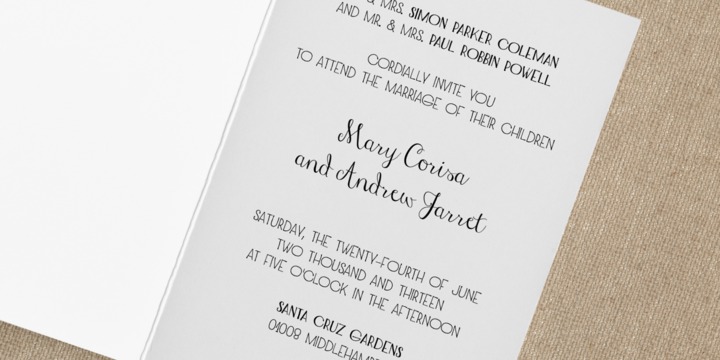 & MRS. SIMON PARKER COLEMAN
AND MR. & MRS. PAUL ROBBIN POWELL
CORDIALLY INVITE YOU
TO ATTEND THE MARRIAGE OF THEIR CHILDREN
Mary Corisa
and Andrew Jarret
SATURDAY, THE TWENTY-FOURTH OF JUNE
TWO THOUSAND AND THIRTEEN
AT FIVE O'CLOCK IN THE AFTERNOON
SANTA CRUZ GARDENS
04008